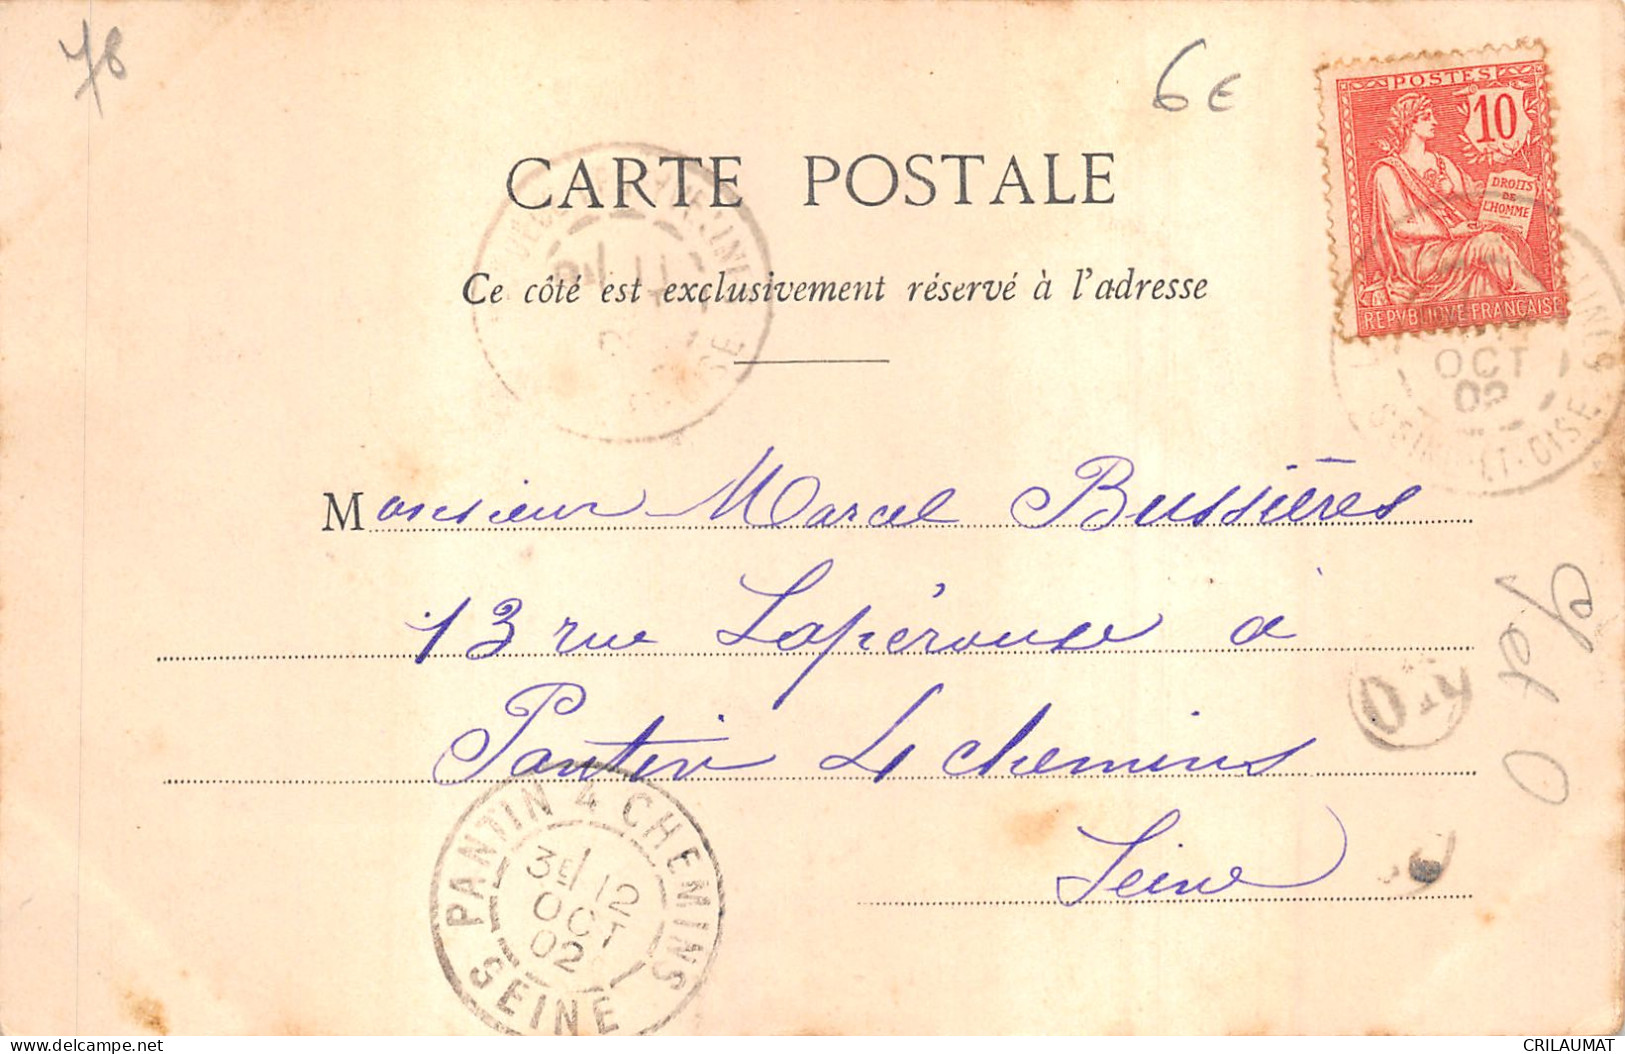 78
6€
POSTES
10
DROITS
DE
L'HOMME
REPVBLIQVE FRANÇAISE
CARTE POSTALE
Ce côté est exclusivement réservé à l'adresse
OCT
02
SEINE-ET-OISE
Monsieur Marcel Bussières
13 rue Lapérouse à
Pantin 4 chemins
Seine
S et O
PANTIN 4 CHEMINS
3E/12
OCT
02
SEINE
CRILAUMAT